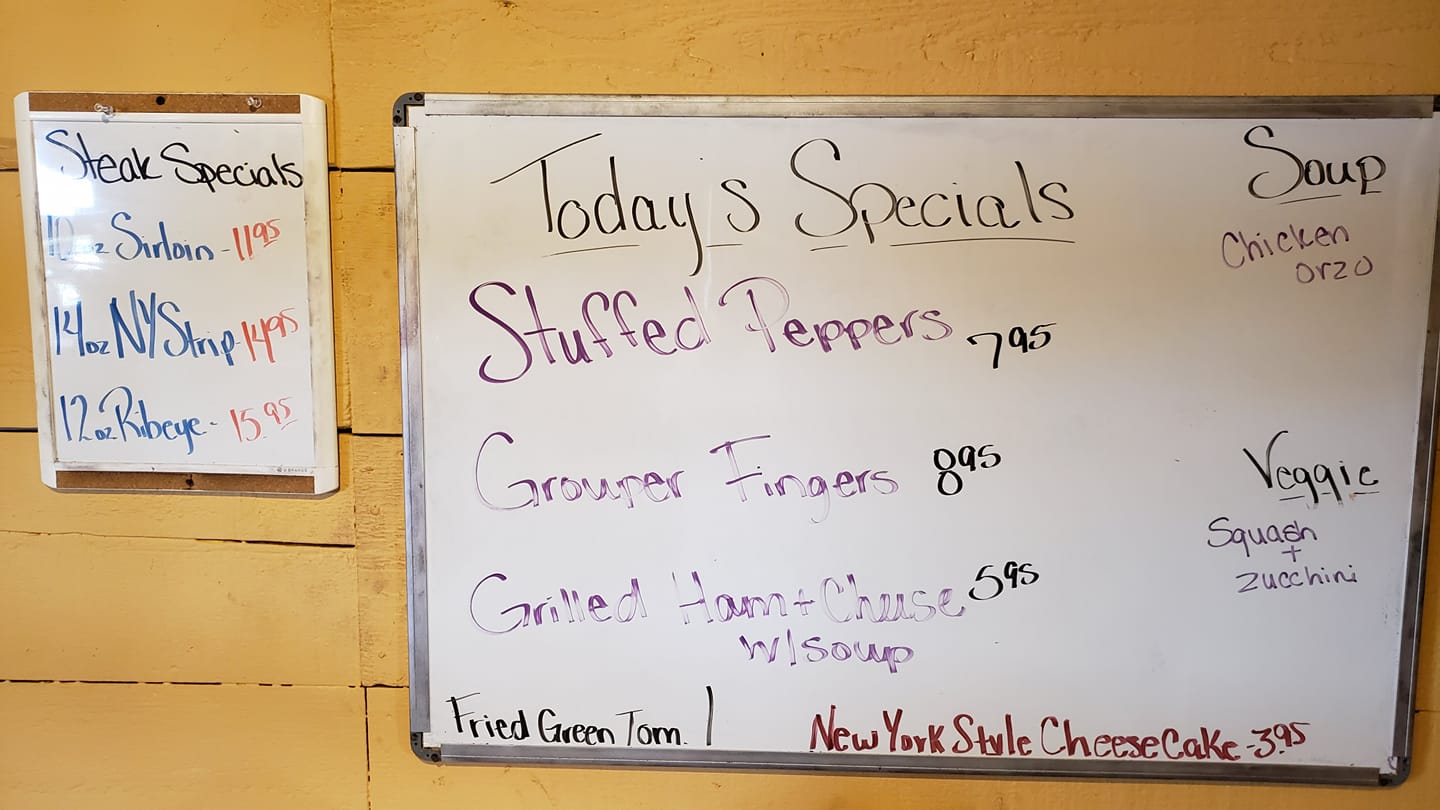 Steak Specials
10oz Sirloin - 11.95
14oz NY Strip - 14.95
12oz Ribeye - 15.95
Today's Specials
Stuffed Peppers 7.95
Grouper Fingers 8.95
Grilled Ham + Cheese 5.95
w/soup
Fried Green Tom.
New York Style Cheese Cake - 3.95
Soup
Chicken
orzo
Veggie
Squash
+
zucchini